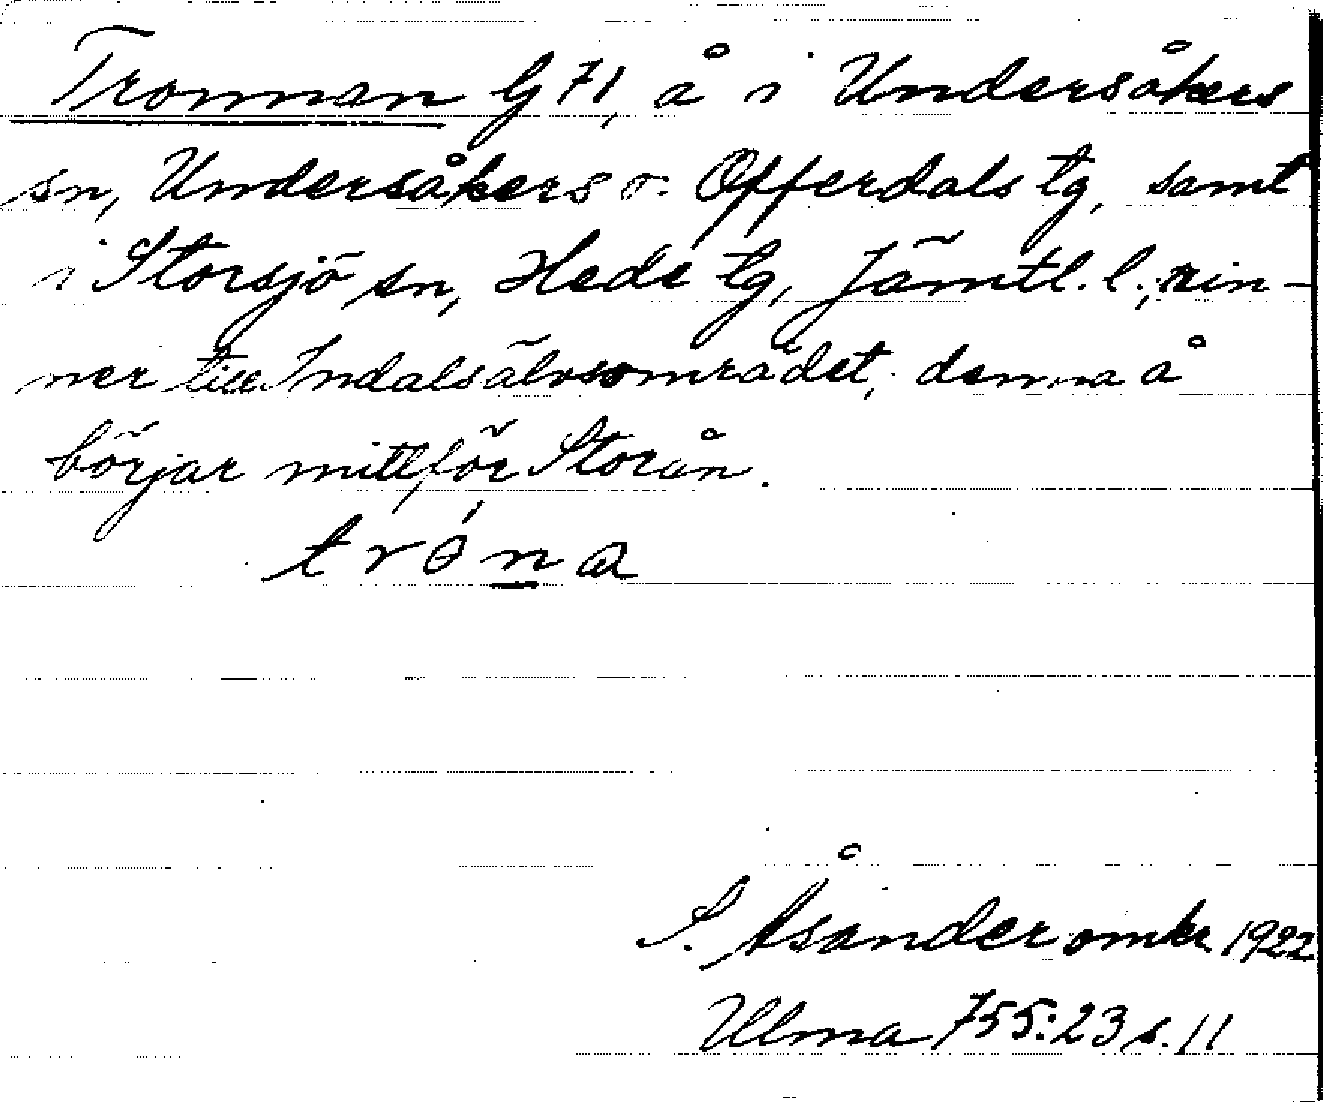 Tronnan G 71, å i Undersåkers
sn, Undersåkers o. Offerdals tg, samt
i Storsjö sn, Hede tg, Jämtl. l.; rin-
ner till Indalsälvsområdet, denna å
börjar mittför Storån.
tróna
S. Åsander omkr. 1922
Ulma 755:23 s. 11